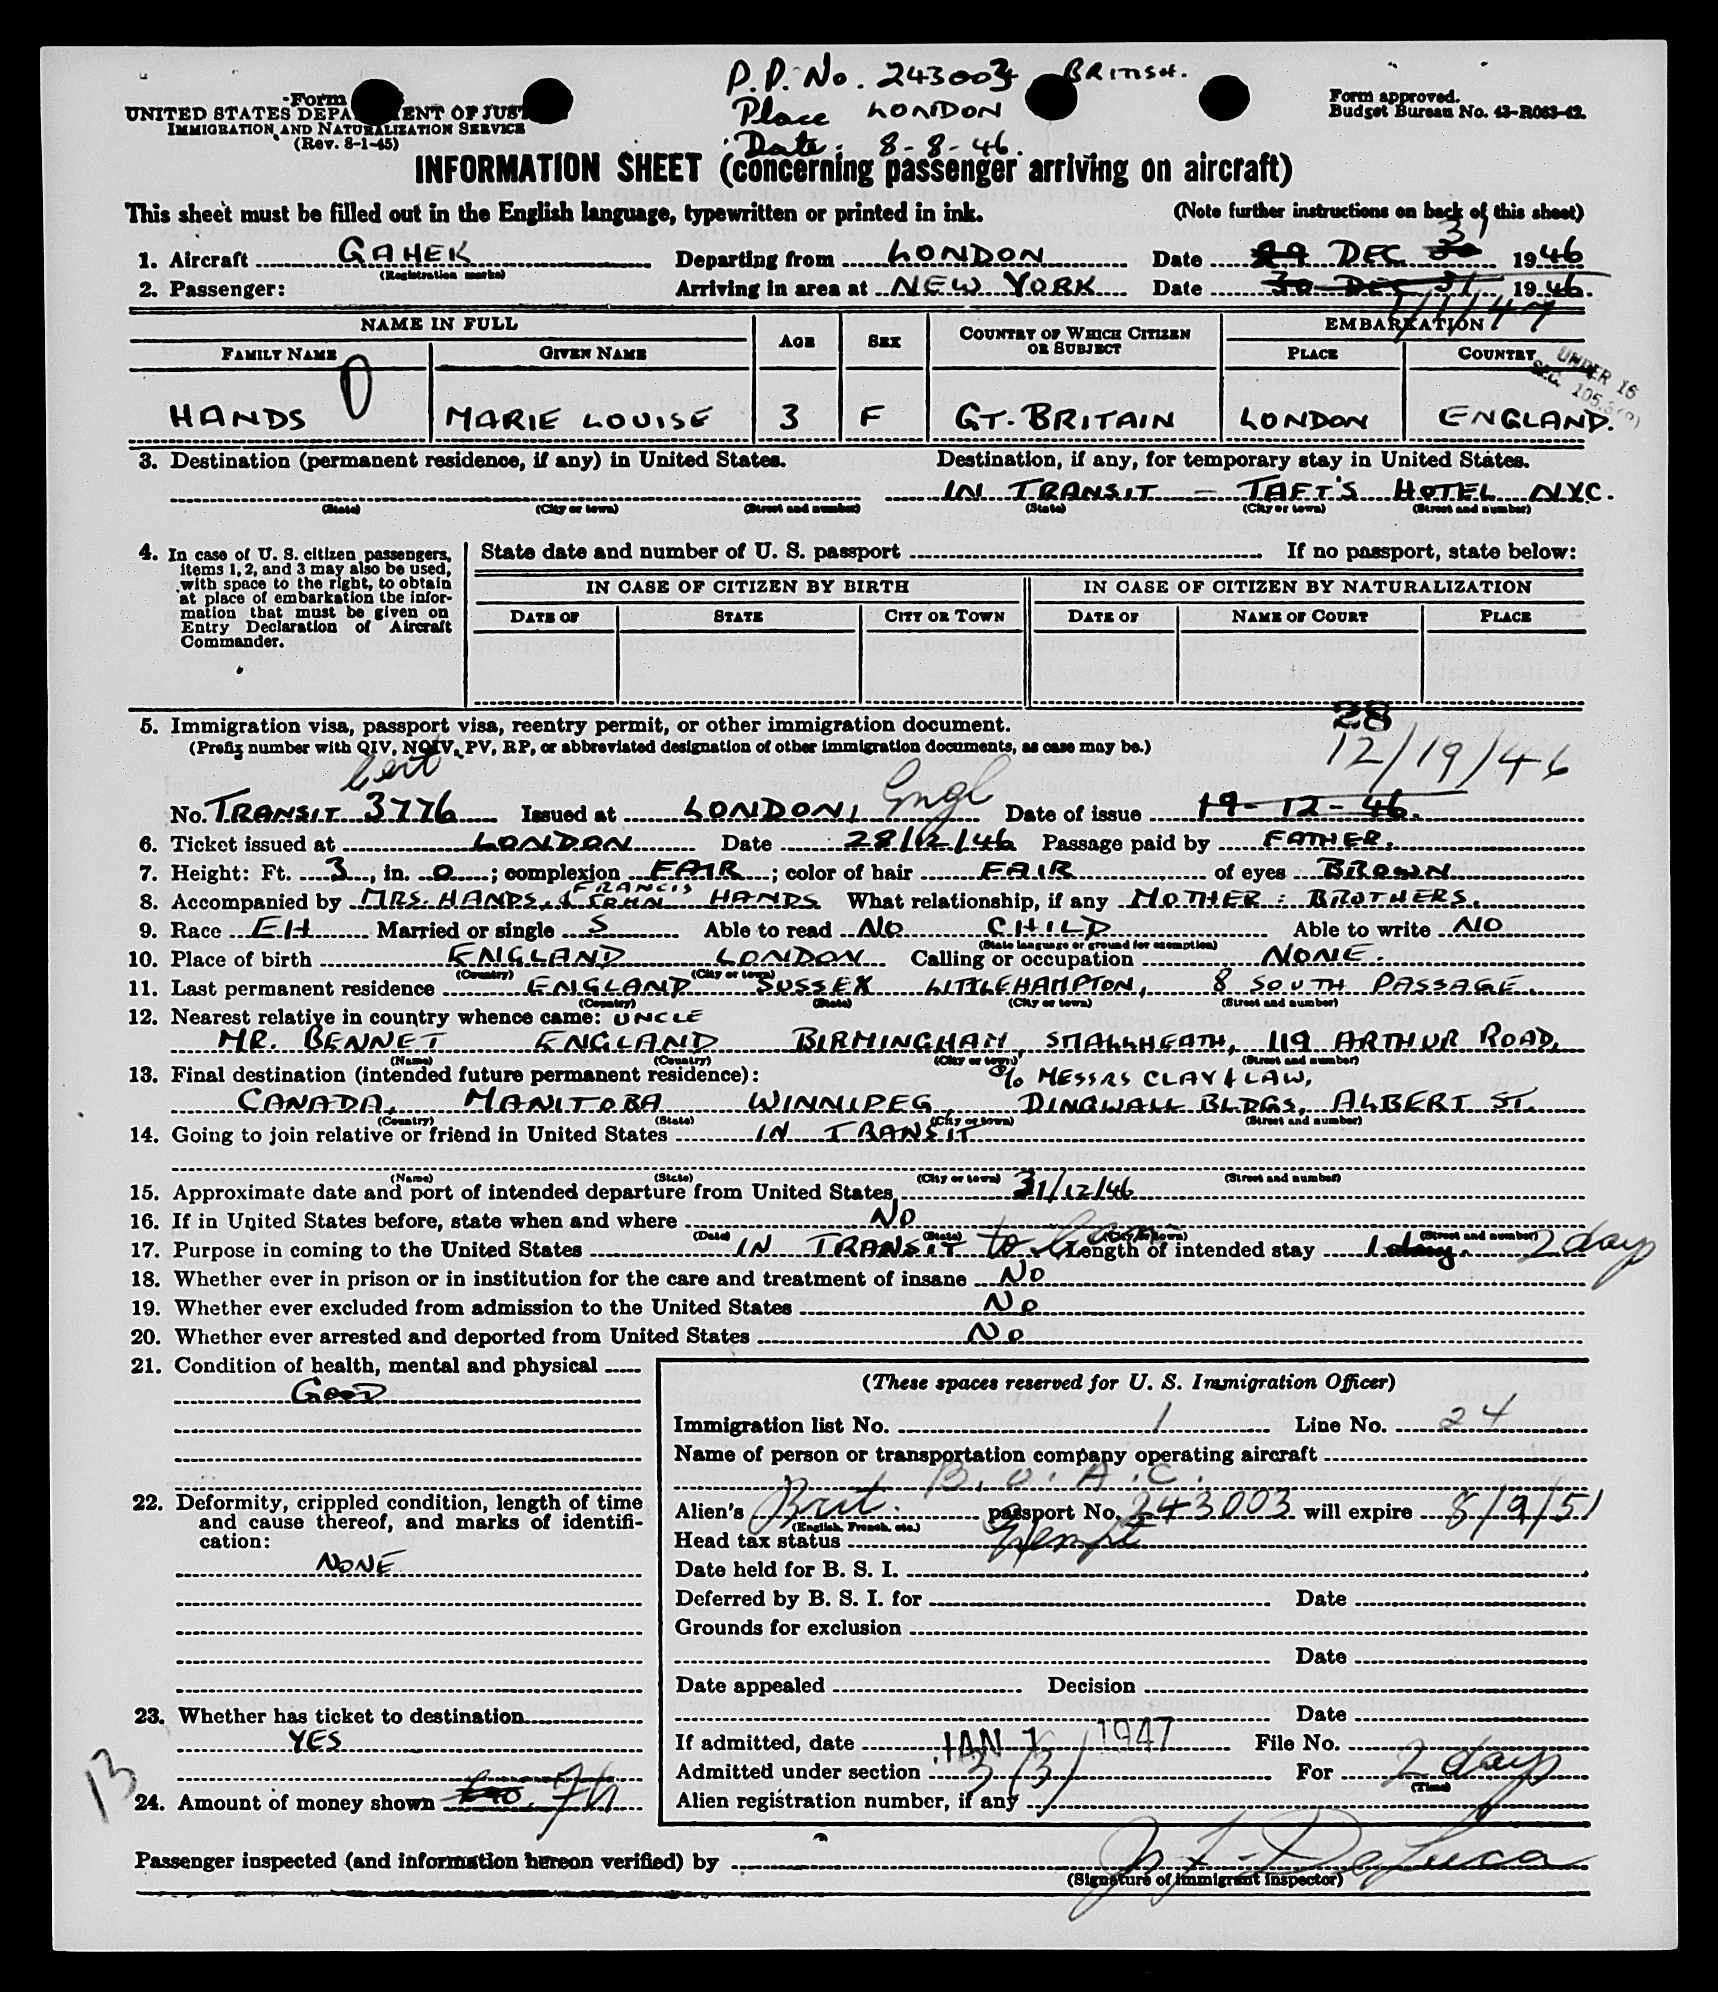 P.P. No. 243003 BRITISH.
Form
Place LONDON
Form approved.
UNITED STATES DEPA ENT OF JUST
Budget Bureau No. 43-R063-42.
IMMIGRATION AND NATURALIZATION SERVICE
(Rev. 8-1-45)
Date. 8-8-46.
INFORMATION SHEET (concerning passenger arriving on aircraft)
This sheet must be filled out in the English language, typewritten or printed in ink. (Note further instructions on back of this sheet)
1. Aircraft GAHEK Departing from LONDON Date DEC 31 1946
(Registration marks)
2. Passenger: Arriving in area at NEW YORK Date 30 DEC 31 1946.
1/1/47
NAME IN FULL AGE SEX COUNTRY OF WHICH CITIZEN OR SUBJECT EMBARKATION
FAMILY NAME GIVEN NAME PLACE COUNTRY
UNDER 16
SEC. 105.3
HANDS MARIE LOUISE 3 F GT. BRITAIN LONDON ENGLAND.
3. Destination (permanent residence, if any) in United States. Destination, if any, for temporary stay in United States.
IN TRANSIT — TAFT'S HOTEL NYC.
(State) (City or town) (Street and number) (State) (City or town) (Street and number)
4. In case of U. S. citizen passengers, items 1, 2, and 3 may also be used, with space to the right, to obtain at place of embarkation the information that must be given on Entry Declaration of Aircraft Commander.
State date and number of U. S. passport If no passport, state below:
IN CASE OF CITIZEN BY BIRTH IN CASE OF CITIZEN BY NATURALIZATION
DATE OF STATE CITY OR TOWN DATE OF NAME OF COURT PLACE
5. Immigration visa, passport visa, reentry permit, or other immigration document.
28
(Prefix number with QIV, NQIV, PV, RP, or abbreviated designation of other immigration documents, as case may be.)
12/19/46
Cert Engl
No. TRANSIT 3776 Issued at LONDON, Date of issue 19-12-46.
6. Ticket issued at LONDON Date 28/12/46 Passage paid by FATHER.
7. Height: Ft. 3, in. 0; complexion FAIR; color of hair FAIR of eyes BROWN
FRANCIS
8. Accompanied by MRS. HANDS, & JOHN HANDS What relationship, if any MOTHER: BROTHERS.
9. Race EH Married or single S Able to read NO CHILD Able to write NO
(State language or ground for exemption)
10. Place of birth ENGLAND LONDON Calling or occupation NONE.
(Country) (City or town)
11. Last permanent residence ENGLAND SUSSEX LITTLEHAMPTON, 8 SOUTH PASSAGE.
(Country) (State) (City or town) (Street and number)
12. Nearest relative in country whence came: UNCLE
MR. BENNET ENGLAND BIRMINGHAM, SMALLHEATH, 119 ARTHUR ROAD.
(Name) (Country) (City or town) (Street and number)
13. Final destination (intended future permanent residence): c/o MESSRS CLAY & LAW,
CANADA, MANITOBA WINNIPEG, DINGWALL BLDGS, ALBERT ST.
(Country) (State) (City or town) (Street and number)
14. Going to join relative or friend in United States IN TRANSIT
(Name) (State) (City or town) (Street and number)
15. Approximate date and port of intended departure from United States, 31/12/46
16. If in United States before, state when and where NO
(Date) (State) (City or town) (Street and number)
17. Purpose in coming to the United States IN TRANSIT to Can. Length of intended stay 1 day. 2 days
18. Whether ever in prison or in institution for the care and treatment of insane NO
19. Whether ever excluded from admission to the United States NO
20. Whether ever arrested and deported from United States NO
21. Condition of health, mental and physical
GOOD
22. Deformity, crippled condition, length of time and cause thereof, and marks of identification:
NONE
23. Whether has ticket to destination
YES
13
24. Amount of money shown
(These spaces reserved for U. S. Immigration Officer)
Immigration list No. 1 Line No. 24
Name of person or transportation company operating aircraft
B.O.A.C.
Alien's Brit. passport No. 243003 will expire 8/9/51
(English, French, etc.)
Head tax status Exempt
Date held for B. S. I.
Deferred by B. S. I. for Date
Grounds for exclusion
Date
Date appealed Decision
Date
If admitted, date JAN 1 1947 File No.
Admitted under section 3/3/ For 2 days
(Time)
Alien registration number, if any
Passenger inspected (and information hereon verified) by
(Signature of Immigrant Inspector)